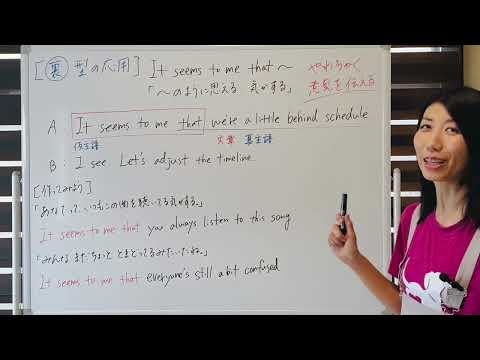 [裏 型の応用] It seems to me that ～
やわらかく
「～のように思える 気がする」
意見を伝える
A It seems to me that we're a little behind schedule
仮主語 文章 真主語
B: I see Let's adjust the timeline.
[作ってみよう]
「あなたって、いつもこの曲を聴いてる気がする。」
It seems to me that you always listen to this song
「みんなまだちょっと とまどってるみたいだね。」
It seems to me that everyone's still a bit confused